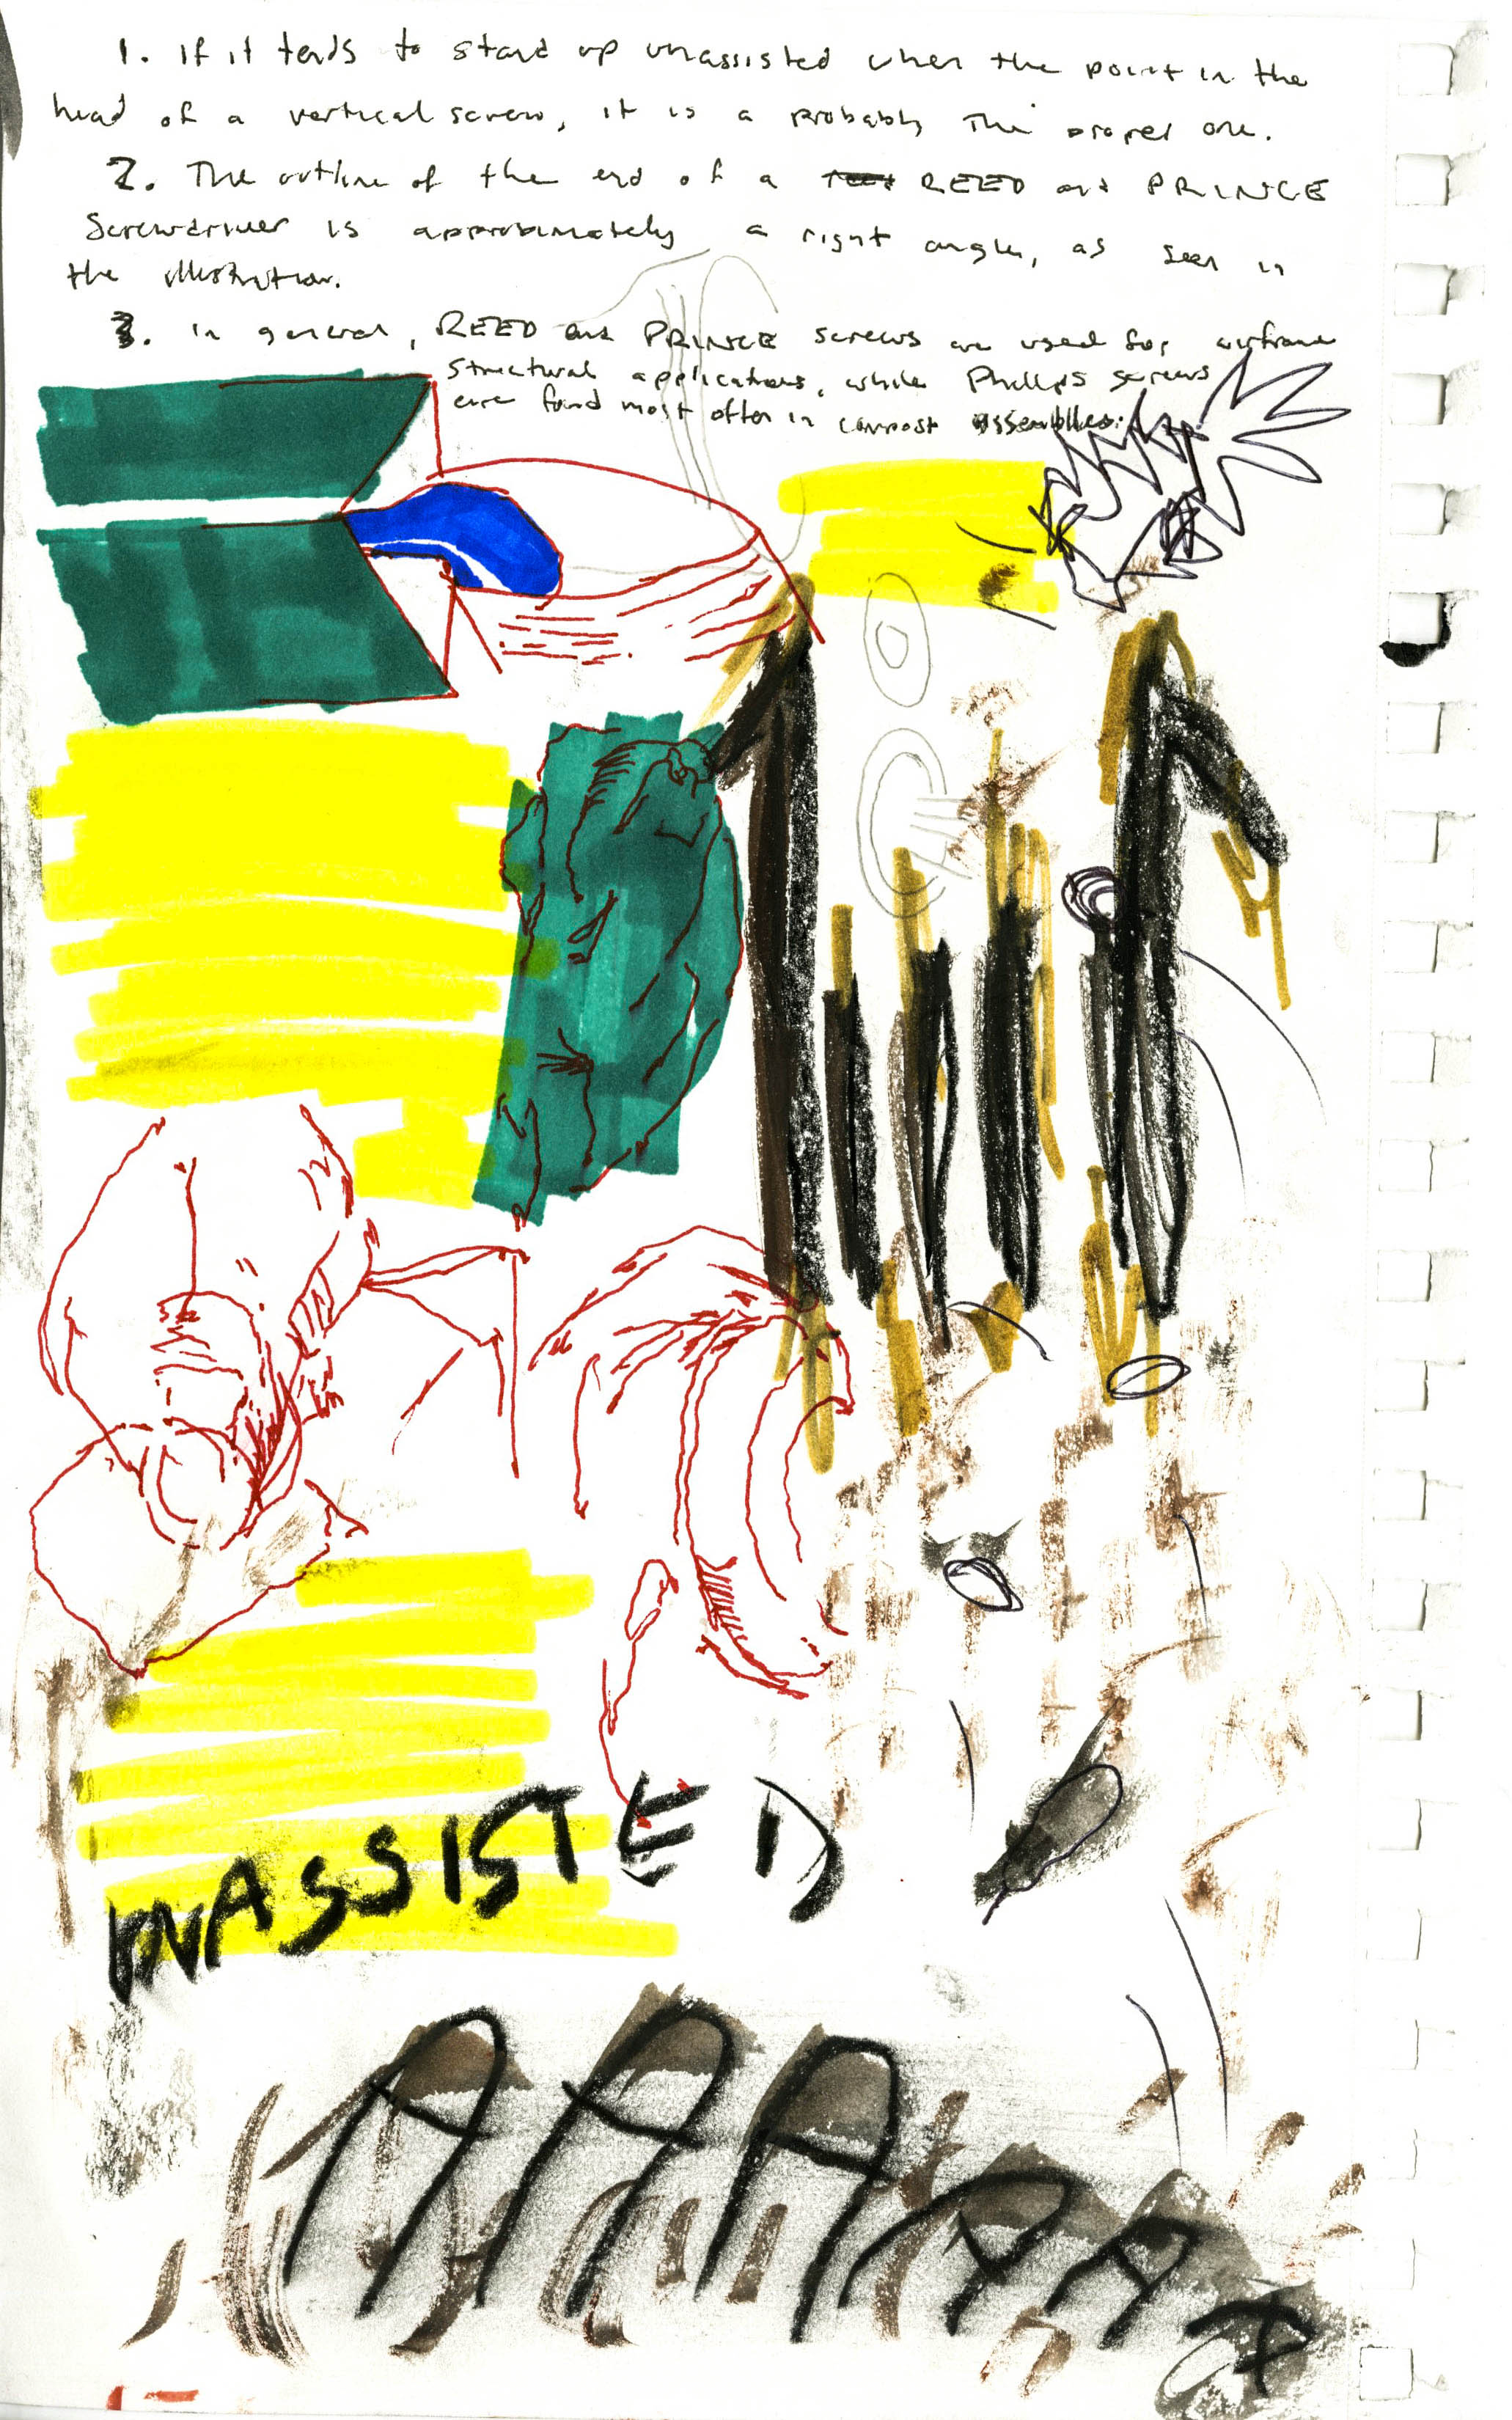 1. If it tends to stand up unassisted when the point in the
head of a vertical screw, it is a probably the proper one.
2. The outline of the end of a REED and PRINCE
Screwdriver is approximately a right angle, as seen in
the illustration.
3. in general, REED and PRINCE screws are used for airframe
structural applications, while Phillips screws
are found most often in compost assemblies.
UNASSISTED
AAAAAA